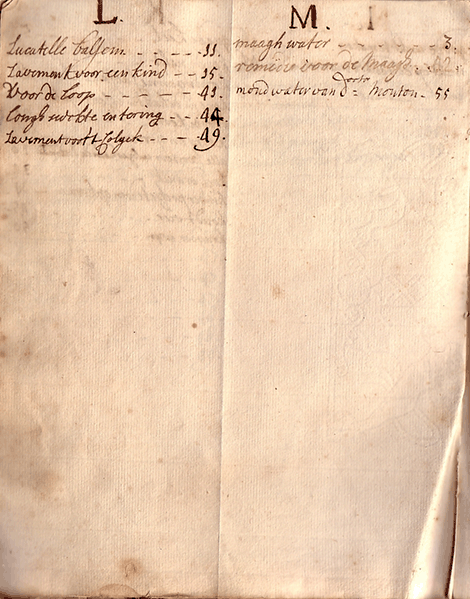 L.
Lucatelle balsem - - - - 11.
Lavement voor een kind - - 15.
Voor de Loop - - - - - 41.
Longh suchte en tering - - - 44
Lavement voor 't Colyck - - - 49.
M.
maagh water - - - - - - 3.
remedie voor de Maagh - 12
mondwater van D:r Mouton - 55